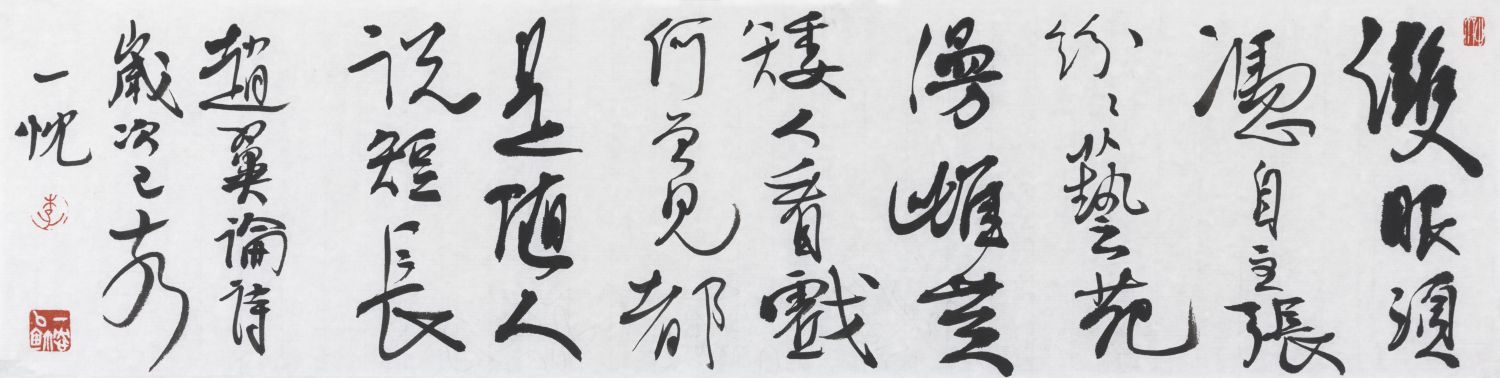 雙眼須
憑自主張
紛〻藝苑
漫雌黃
矮人看戲
何曾見都
是隨人
説短長
趙翼論詩
歲次己亥
一忱
李